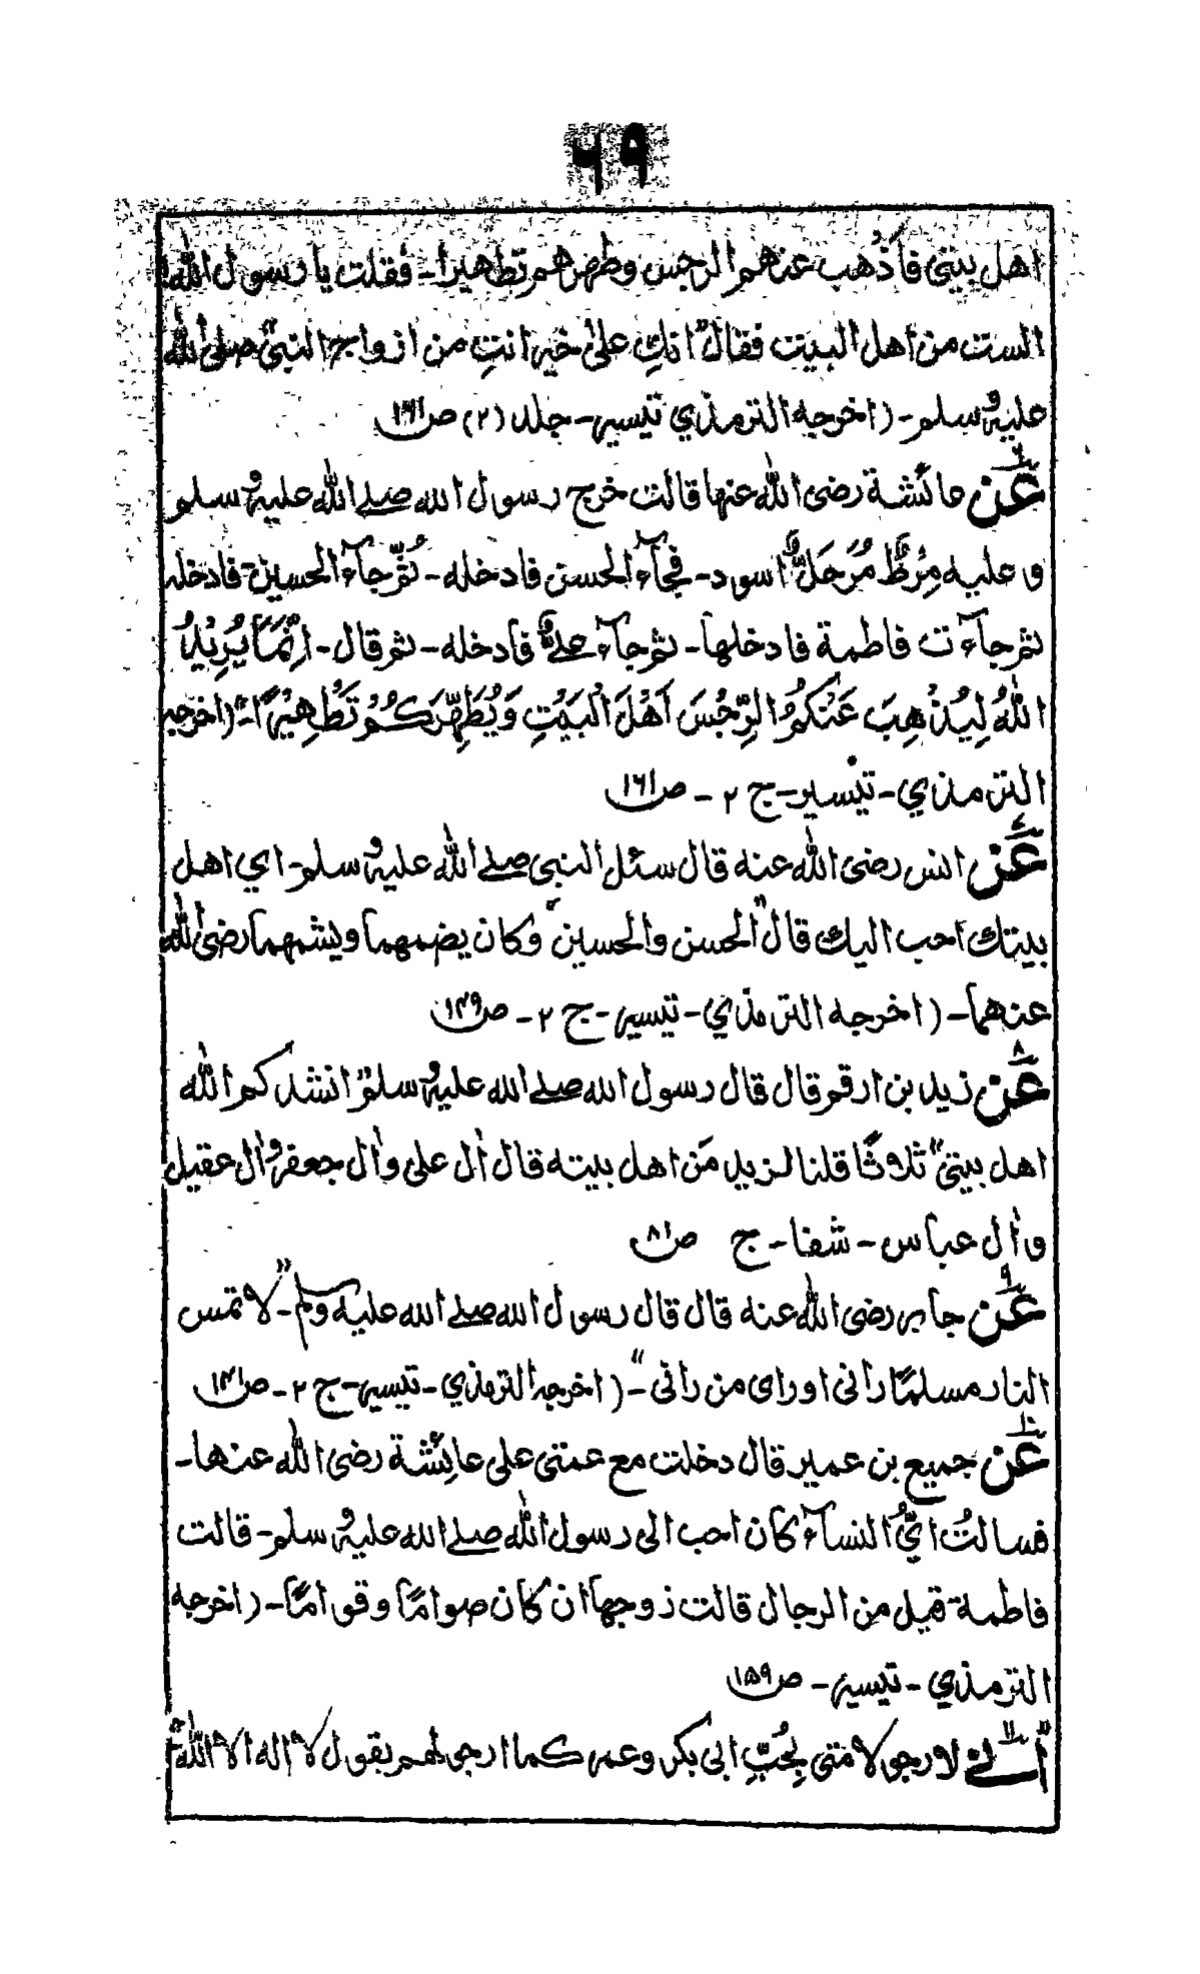 ٦٩
اهل بيتى فأذهب عنهم الرجس وطهرهم تطهيرا۔ فقلت يا رسول الله!
الست من اهل البيت فقال "انك على خير انتِ من ازواج النبى" صلى الله
عليه وسلم۔ (اخرجه الترمذي تيسير۔ جلد (٢) ص١٦١
عَن عائشة رضى الله عنها قالت خرج رسول الله صلے الله عليه وسلم
و عليه مِرُطٌ مُرَحَلٌ اسود۔ فجآء الحسن فادخله۔ ثُمَّ جآء الحسين فادخله
ثم جآءت فاطمة فادخلها۔ ثم جآء علىٌّ فأدخله۔ ثم قال۔ اِنَّمَا يُرِيْدُ
اللهُ لِيُذْهِبَ عَنْكُمُ الرِّجْسَ اَهْلَ الْبَيْتِ وَيُطَهِّرَكُمْ تَطْهِيْرًا۔" (اخرجه
الترمذي۔ تيسير۔ ج ٢ ۔ ص١٦١
عَن انس رضى الله عنه قال سئل النبى صلے الله عليه وسلم۔ اي اهل
بيتك احب اليك قال "الحسن والحسين" وكان يضمهما ويشمهما رضى الله
عنهما۔ (اخرجه الترمذي۔ تيسير۔ ج ٢ ۔ ص١٤٩
عَن زيد بن ارقم قال قال رسول الله صلے الله عليه وسلم "انشدكم الله
اهل بيتى" ثلاثًا قلنا لزيد مَن اهل بيته قال اٰل على واٰل جعفر واٰل عقيل
واٰل عباس۔ شفا۔ ج ص٨١
عَن جابر رضى الله عنه قال قال رسول الله صلے الله عليه وسلم۔ "لا تمس
النار مسلمًا رانى او راى من رانى"۔ (اخرجه الترمذي۔ تيسير۔ ج ٢ ۔ ص١٤١
عَن جميع بن عمير قال دخلت مع عمتى على عائِشة رضى الله عنها۔
فسالتُ ايُّ النسآء كان احب الى رسول الله صلے الله عليه وسلم۔ قالت
فاطمة قيل من الرجال قالت زوجها ان كان صوامًا وقوامًا۔ (اخرجه
الترمذي۔ تيسير۔ ص١٥٩
"اِنّے لارجو لامتى بِحُبِّ ابى بكر وعمر كما ارجى لهم بقول لا اله الا الله"